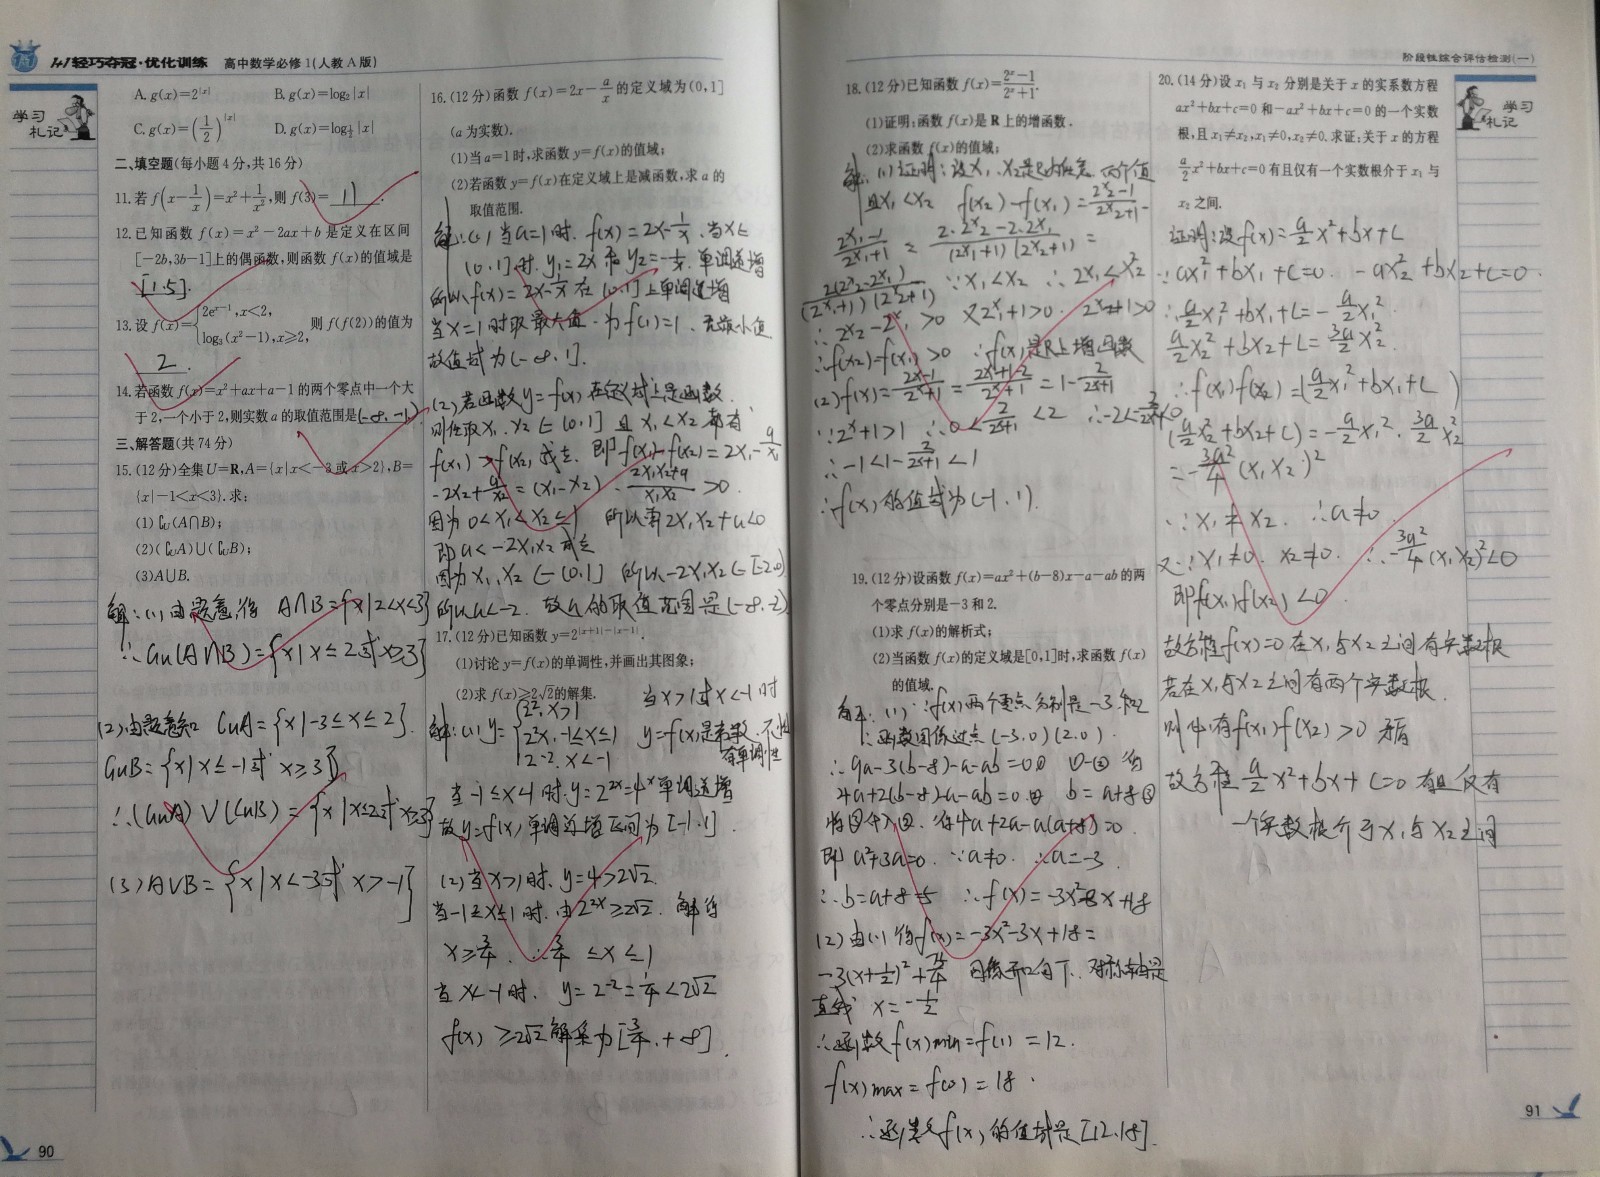 轻巧夺冠·优化训练 高中数学必修1(人教A版)
学习
札记
A. g(x)=2^|x| B. g(x)=log₂|x|
C. g(x)=(1/2)^|x| D. g(x)=log_{1/2}|x|
二、填空题(每小题4分,共16分)
11. 若 f(x-1/x)=x²+1/x²,则 f(3)= 11 .
12. 已知函数 f(x)=x²-2ax+b 是定义在区间
[-2b,3b-1]上的偶函数,则函数 f(x)的值域是
[1.5].
13. 设 f(x)={2e^{x-1},x<2, log₃(x²-1),x≥2, 则 f(f(2))的值为
2 .
14. 若函数 f(x)=x²+ax+a-1的两个零点中一个大
于2,一个小于2,则实数a的取值范围是(-∞.-1)
三、解答题(共74分)
15. (12分)全集U=R,A={x|x<-3或x>2},B=
{x|-1<x<3}.求:
(1) ∁U(A∩B);
(2) (∁UA)∪(∁UB);
(3)A∪B.
解:(1)由题意,得 A∩B={x|2<x<3}
∴CU(A∩B)={x|x≤2或x≥3}
(2)由题意知 CUA={x|-3≤x≤2}.
CUB={x|x≤-1或 x≥3}
∴(CUA)∪(CUB)={x|x≤2或x≥3}
(3)A∪B={x|x<-3或 x>-1}
90
16. (12分)函数 f(x)=2x-a/x 的定义域为(0,1]
(a为实数).
(1)当a=1时,求函数y=f(x)的值域;
(2)若函数y=f(x)在定义域上是减函数,求a的
取值范围.
解:(1)当a=1时. f(x)=2x-1/x. 当x∈
(0.1]时. y₁=2x和y₂=-1/x.单调递增
所以f(x)=2x-1/x在(0.1]上单调递增
当x=1时取最大值.为f(1)=1.无最小值
故值域为(-∞.1].
(2)若函数y=f(x)在定义域上是减函数.
则任取x₁.x₂∈(0.1]且x₁<x₂都有
f(x₁)>f(x₂)成立. 即f(x₁)-f(x₂)=2x₁-a/x₁
-2x₂+a/x₂=(x₁-x₂)·(2x₁x₂+a)/(x₁x₂)>0.
因为0<x₁<x₂≤1 所以需2x₁x₂+a<0
即a<-2x₁x₂成立
因为x₁.x₂∈(0.1] 所以-2x₁x₂∈[-2.0)
所以a<-2. 故a的取值范围是(-∞.-2)
17. (12分)已知函数 y=2^{|x+1|-|x-1|}.
(1)讨论y=f(x)的单调性,并画出其图象;
(2)求 f(x)≥2√2的解集.
当x>1或x<-1时
解:(1)y={2².x>1 2^{2x}.-1≤x≤1 2⁻².x<-1 y=f(x)是常数.不
单调性
当-1≤x≤1时.y=2^{2x}=4^x单调递增
故y=f(x)单调递增区间为[-1.1].
(2)当x>1时.y=4>2√2.
当-1≤x≤1时.由2^{2x}≥2√2. 解得
x≥3/4. ∴3/4≤x≤1
当x<-1时. y=2⁻²=1/4<2√2
f(x)≥2√2解集为[3/4.+∞].
阶段性综合评估检测(一)
18. (12分)已知函数 f(x)=(2^x-1)/(2^x+1).
(1)证明:函数 f(x)是R上的增函数.
(2)求函数 f(x)的值域;
解:(1)证明:设x₁.x₂是R内任意两个值
且x₁<x₂ f(x₂)-f(x₁)=(2^{x₂}-1)/(2^{x₂}+1)-
(2^{x₁}-1)/(2^{x₁}+1)=(2·2^{x₂}-2·2^{x₁})/((2^{x₁}+1)(2^{x₂}+1))=
2(2^{x₂}-2^{x₁})/((2^{x₁}+1)(2^{x₂}+1)) ∵x₁<x₂ ∴2^{x₁}<2^{x₂}
∴2^{x₂}-2^{x₁}>0 又2^{x₁}+1>0. 2^{x₂}+1>0
∴f(x₂)-f(x₁)>0 ∴f(x)是R上增函数
(2)f(x)=(2^x-1)/(2^x+1)=(2^x+1-2)/(2^x+1)=1-2/(2^x+1)
∵2^x+1>1 ∴0<2/(2^x+1)<2 ∴-2<-2/(2^x+1)<0
∴-1<1-2/(2^x+1)<1
∴f(x)的值域为(-1.1).
19. (12分)设函数 f(x)=ax²+(b-8)x-a-ab的两
个零点分别是-3和2.
(1)求 f(x)的解析式;
(2)当函数 f(x)的定义域是[0,1]时,求函数 f(x)
的值域.
解:(1)∵f(x)两个零点分别是-3和2
∴函数图像过点(-3.0)(2.0).
∴9a-3(b-8)-a-ab=0① ①-②得
4a+2(b-8)-a-ab=0② b=a+8③
将③代入②.得4a+2a-a(a+8)=0.
即a²+3a=0. ∵a≠0. ∴a=-3.
∴b=a+8=5 ∴f(x)=-3x²-3x+18
(2)由(1)得f(x)=-3x²-3x+18=
-3(x+1/2)²+75/4 图像开口向下.对称轴是
直线 x=-1/2
∴函数f(x)min=f(1)=12.
f(x)max=f(0)=18.
∴函数f(x)的值域是[12.18].
20. (14分)设x₁与x₂分别是关于x的实系数方程
ax²+bx+c=0和-ax²+bx+c=0的一个实数
根,且x₁≠x₂,x₁≠0,x₂≠0.求证:关于x的方程
a/2x²+bx+c=0有且仅有一个实数根介于x₁与
x₂之间.
证明:设f(x)=a/2x²+bx+c
∵ax₁²+bx₁+c=0. -ax₂²+bx₂+c=0.
∴a/2x₁²+bx₁+c=-a/2x₁².
a/2x₂²+bx₂+c=3a/2x₂².
∴f(x₁)f(x₂)=(a/2x₁²+bx₁+c)
(a/2x₂²+bx₂+c)=-a/2x₁².3a/2x₂²
=-3a²/4(x₁x₂)²
∵x₁≠x₂. ∴a≠0.
又∵x₁≠0.x₂≠0. ∴-3a²/4(x₁x₂)²<0
即f(x₁)f(x₂)<0.
故方程f(x)=0在x₁与x₂之间有实数根
若在x₁与x₂之间有两个实数根.
则必有f(x₁)f(x₂)>0 矛盾
故方程a/2x²+bx+c=0有且仅有
一个实数根介于x₁与x₂之间
学习
札记
91